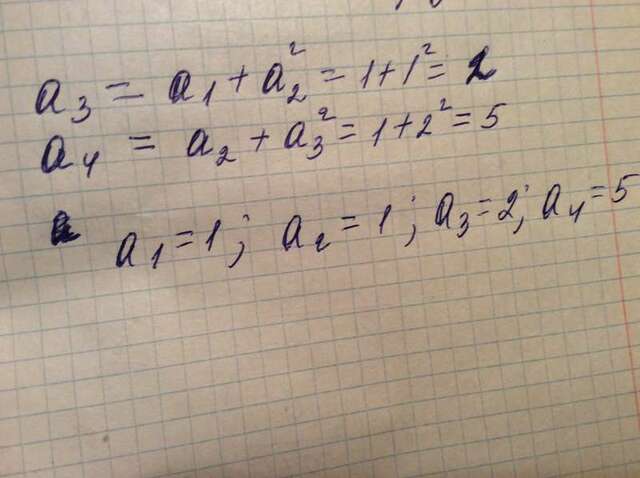 a₃ = a₁ + a₂² = 1 + 1² = 2
a₄ = a₂ + a₃² = 1 + 2² = 5
a₁ = 1; a₂ = 1; a₃ = 2; a₄ = 5